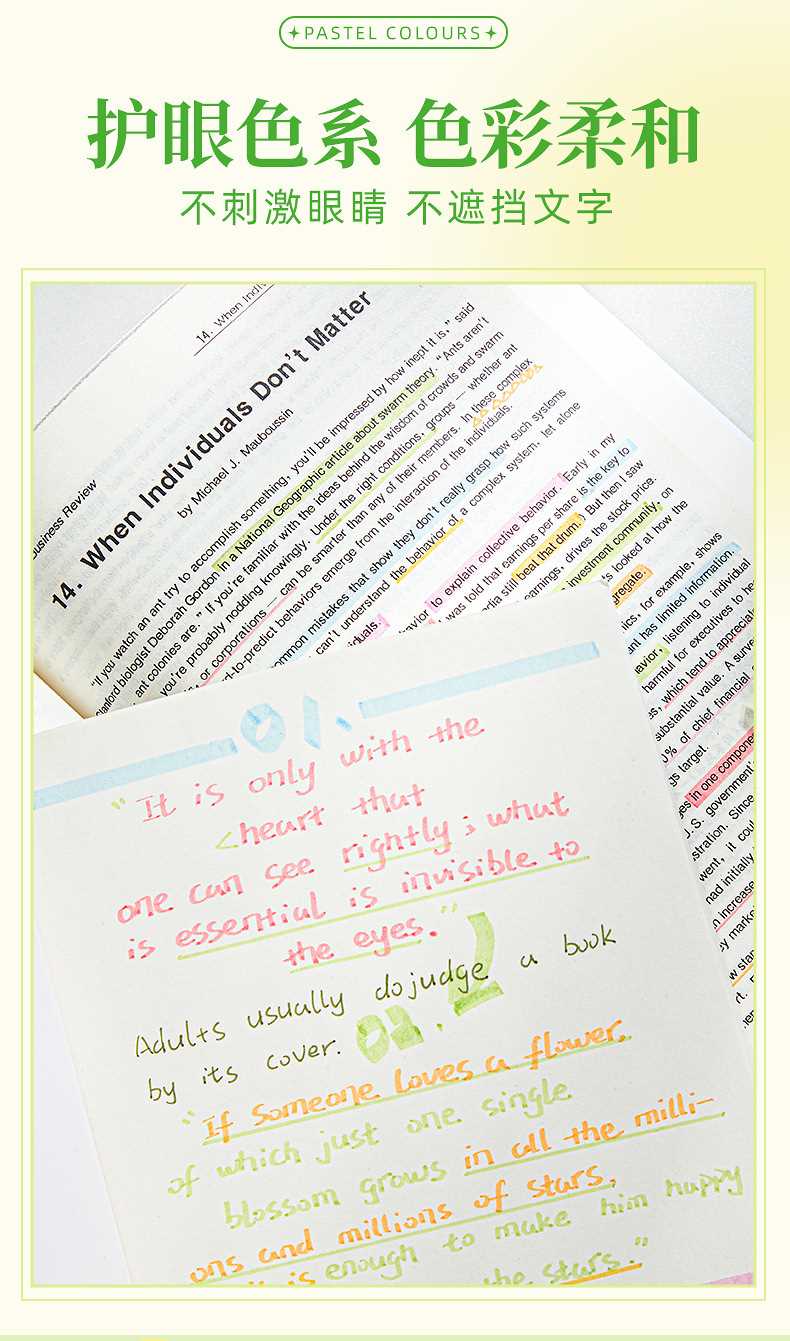 PASTEL COLOURS
护眼色系 色彩柔和
不刺激眼睛 不遮挡文字
14. When
Business Review
14. When Individuals Don't Matter
by Michael J. Mauboussin
"If you watch an ant try to accomplish something, you'll be impressed by how inept it is," said
Stanford biologist Deborah Gordon in a National Geographic article about swarm theory. "Ants aren't
ant colonies are." If you're familiar with the ideas behind the wisdom of crowds and swarm
you're probably nodding knowingly. Under the right conditions, groups — whether ant
or corporations — can be smarter than any of their members. In these complex
-to-predict behaviors emerge from the interaction of the individuals.
common mistakes that show they don't really grasp how such systems
can't understand the behavior of a complex system, let alone
individuals.
behavior to explain collective behavior. Early in my
was told that earnings per share is the key to
still beat that drum. But then I saw
earnings, drives the stock price.
investment community, on
looked at how the
aggregate.
for example, shows
ant has limited information.
behavior, listening to individual
harmful for executives to
which tend to
substantial value. A
% of chief financial
target.
in one
U.S. government
Since
went, it
had initially
increase
01.
"It is only with the
heart that
one can see rightly; what
is essential is invisible to
the eyes."
Adults usually do judge a book
by its cover.
02.
"If someone loves a flower,
of which just one single
blossom grows in all the milli-
ons and millions of stars,
it is enough to make him happy
the stars."